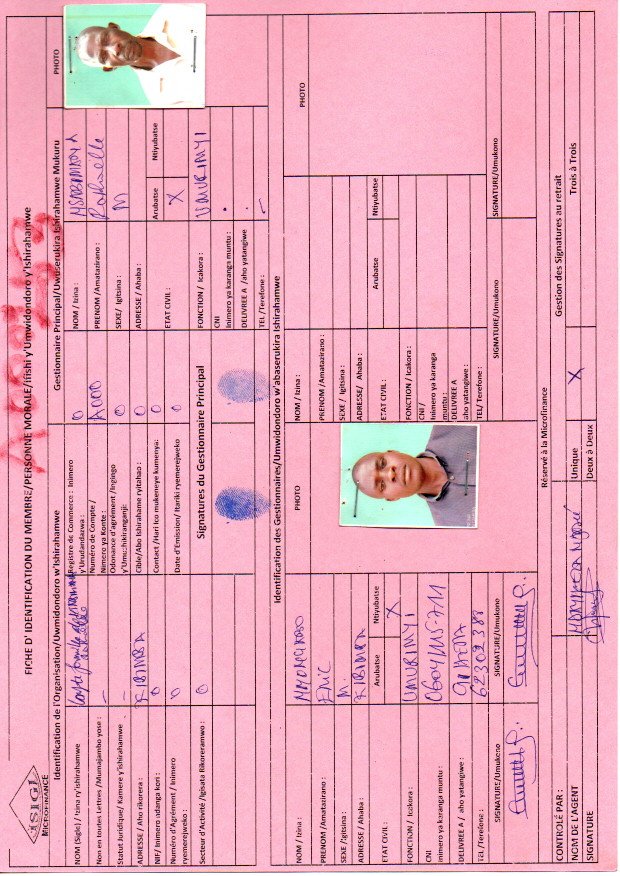 FICHE D' IDENTIFICATION DU MEMBRE/PERSONNE MORALE/Ifishi y'Umwidondoro y'Ishirahamwe
ISIGI
MICROFINANCE
Identification de l'Organisation/Uwmidondoro w'Ishirahamwe
NOM (Sigle) / Izina ry'ishirahamwe
Compte
Non en toutes Lettres /Mumajambo yose :
Statut Juridique/ Kamere y'ishirahamwe
ADRESSE / Aho rikorera : KIBIMBA
NIF/ Inimero ndanga kori : 0
Numéro d'Agrément / Inimero
ryemerejweko : 0
Secteur d'Activité /Igisata Rikoreramwo : 0
Registre de Commerce : Inimero
y'Urudandazwa : 0
Numéro de Compte /
Nimero ya Konte :
Odonance d'agrément /Ingingo
y'Umushikiranganji: 0
Cible/Abo Ishirahame ryitabao : 0
Contact /Hari ico mukeneye kumenya: 0
Date d'Emission/ Itariki ryemerejweko 0
Signatures du Gestionnaire Principal
Gestionnaire Principal/Uwuserukira Ishirahamwe Mukuru
PHOTO
NOM / Izina :
PRENOM /Amatazirano :
SEXE/ Igitsina : M
ADRESSE / Ahaba :
ETAT CIVIL : Arubatse Ntiyubatse
X
FONCTION / Icakora : UMURIMYI
CNI
Inimero ya karanga muntu :
DELIVREE A /aho yatangiwe
TEL /Terefone :
Identification des Gestionnaires/Umwidondoro w'abaserukira Ishirahamwe
PHOTO
NOM / Izina :
PRENOM /Amatazirano : ERIC
SEXE /Igitsina : M.
ADRESSE / Ahaba : KIBIMBA
ETAT CIVIL : Arubatse Ntiyubatse
X
FONCTION / Icakora : UMURIMYI
CNI
inimero ya karanga muntu :
DELIVREE A / aho yatangiwe: GIHETA
TEL /Terefone : 62302388
SIGNATURE/Umukono SIGNATURE/Umukono
PHOTO
NOM / Izina :
PRENOM /Amatazirano :
SEXE / Igitsina :
ADRESSE/ Ahaba :
ETAT CIVIL : Arubatse Ntiyubatse
FONCTION / Icakora :
CNI /
Inimero ya karanga
muntu :
DELIVREE A
aho yatangiwe :
TEL/ Terefone :
SIGNATURE/Umukono SIGNATURE/Umukono
Réservé à la Microfinance
CONTROLÉ PAR :
NOM DE L'AGENT
SIGNATURE
Gestion des Signatures au retrait
Unique X Trois à Trois
Deux à Deux